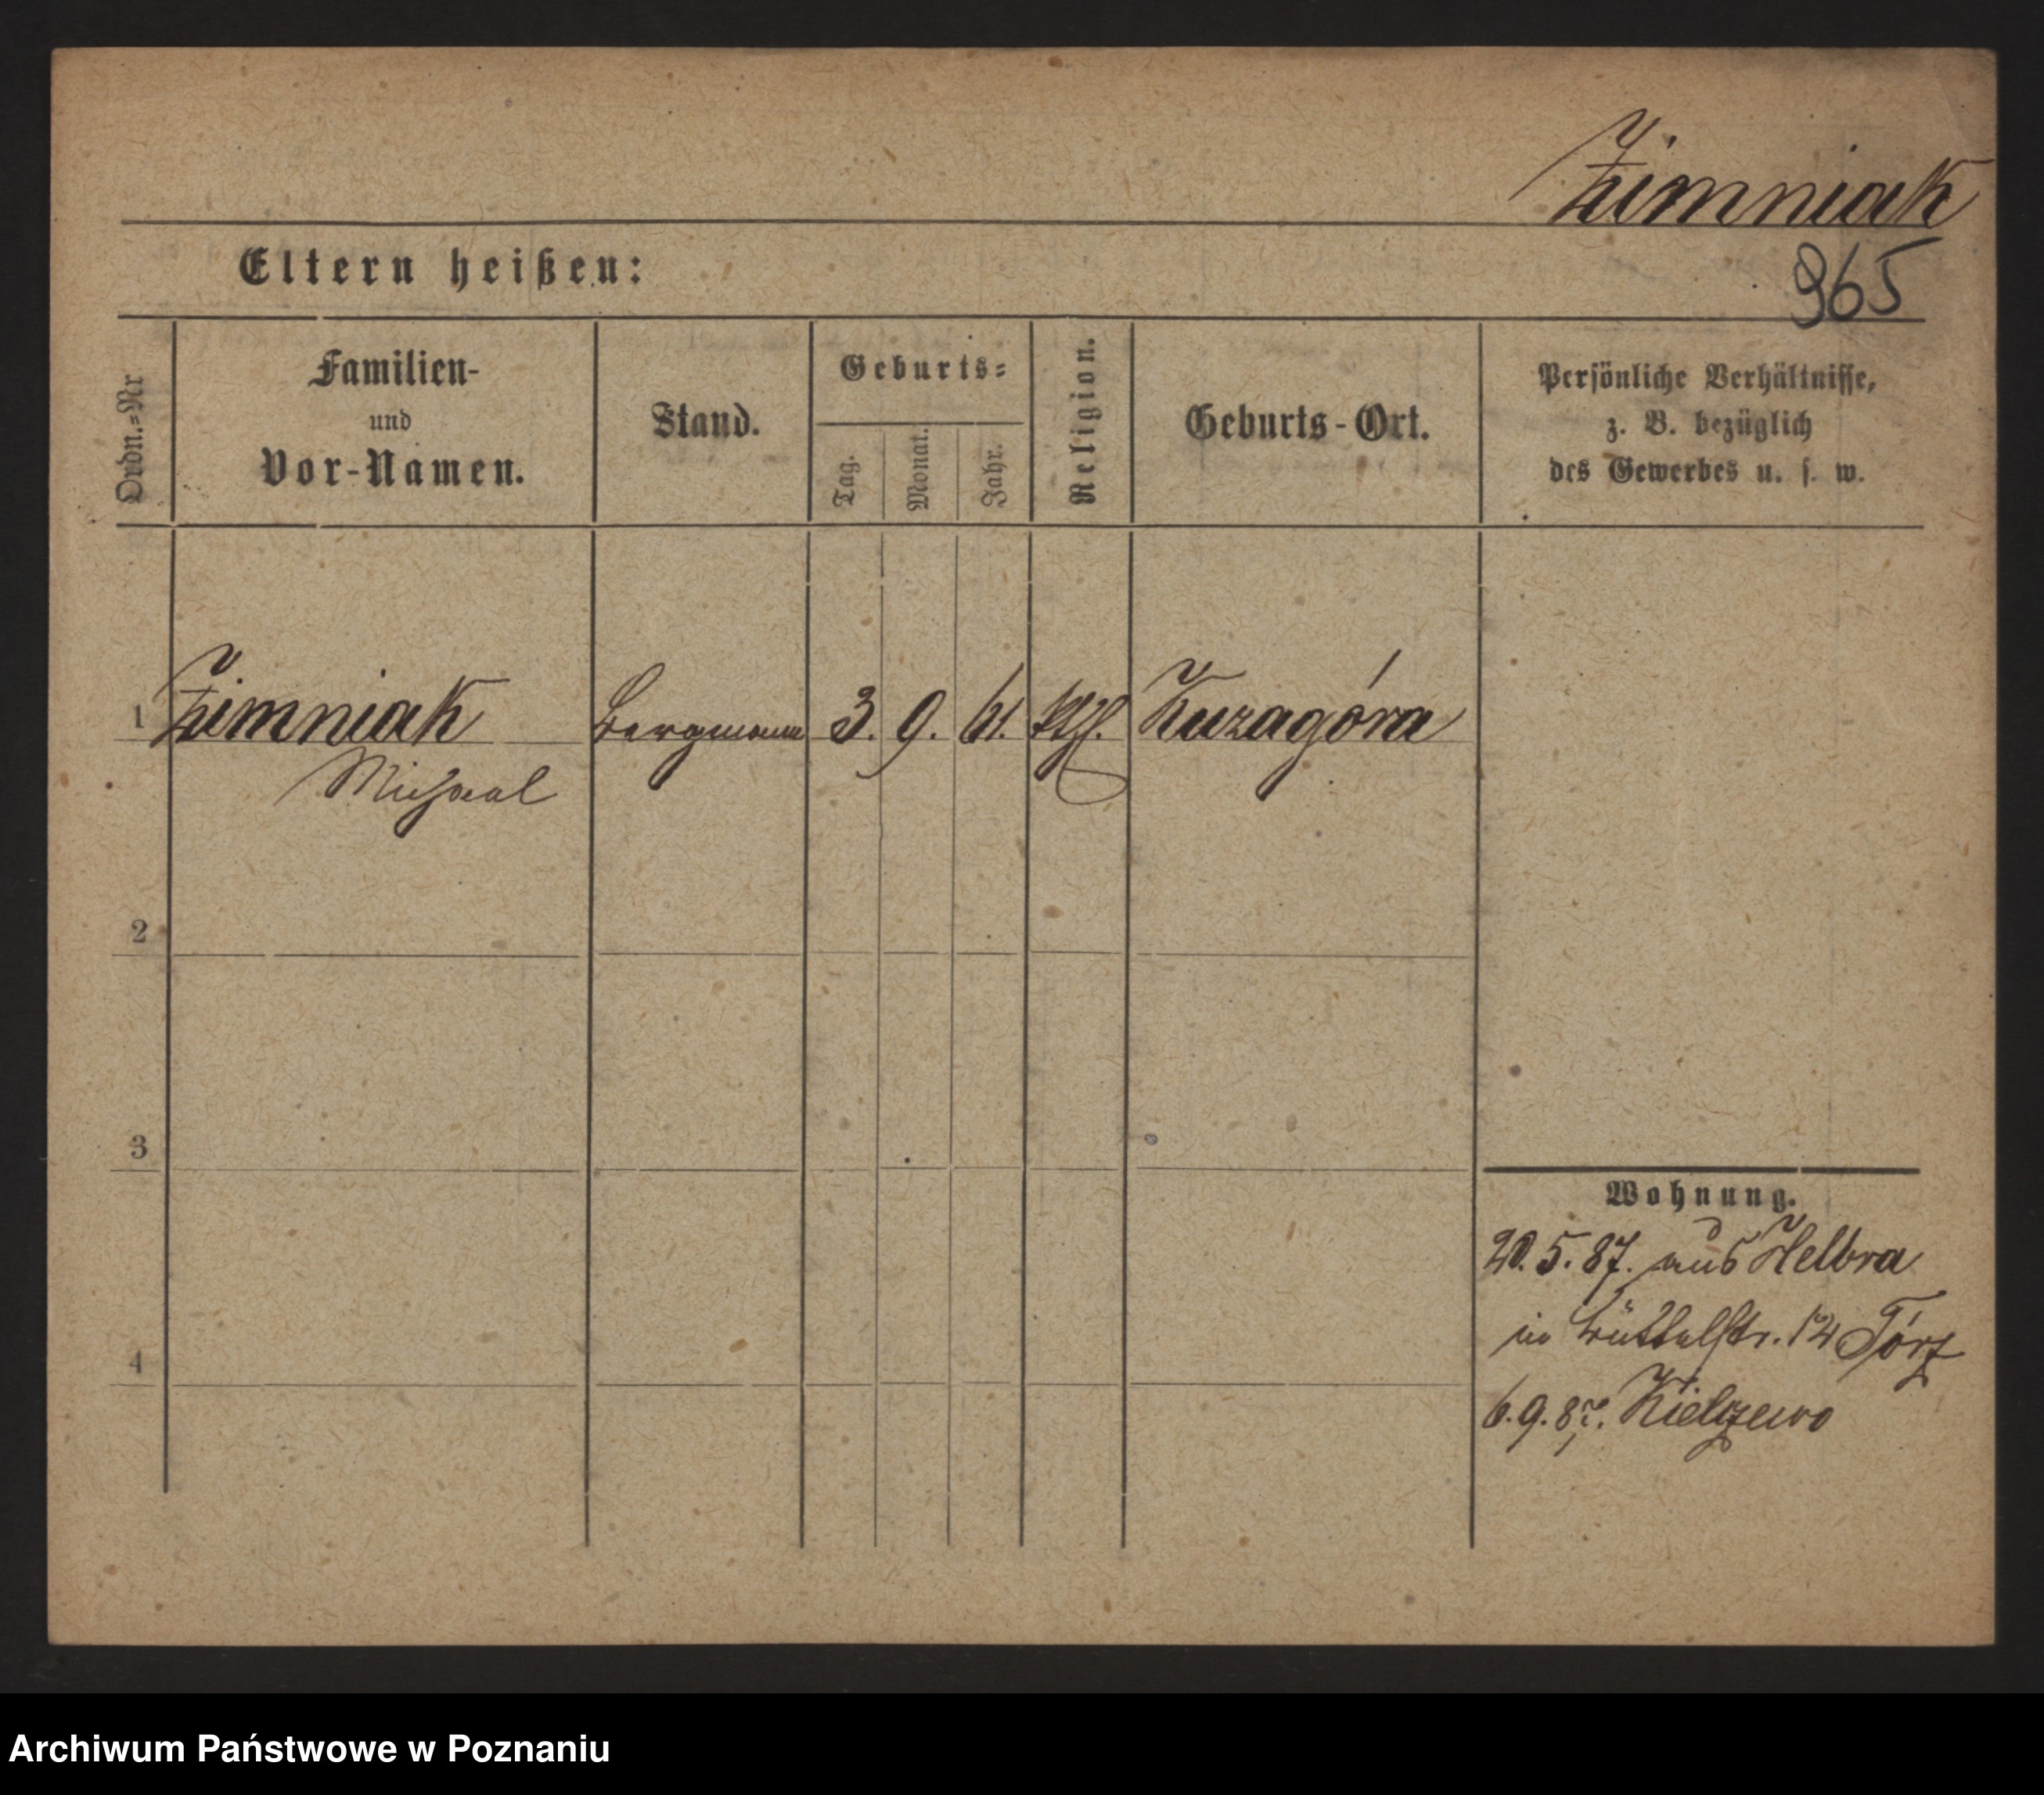 Zimniak
Eltern heißen:
965
Ordn.=Nr
Familien-
und
Vor-Namen.
Stand.
Geburts=
Tag.
Monat.
Jahr.
Religion.
Geburts-Ort.
Persönliche Verhältnisse,
z. B. bezüglich
des Gewerbes u. s. w.
1 Zimniak Bergmann 3. 9. 61. kth. Kuzagóra
Michael
2
3
4
Wohnung.
20. 5. 87. aus Helbra
in Büttelstr. 12
6. 9. 87. Kielczewo
Archiwum Państwowe w Poznaniu